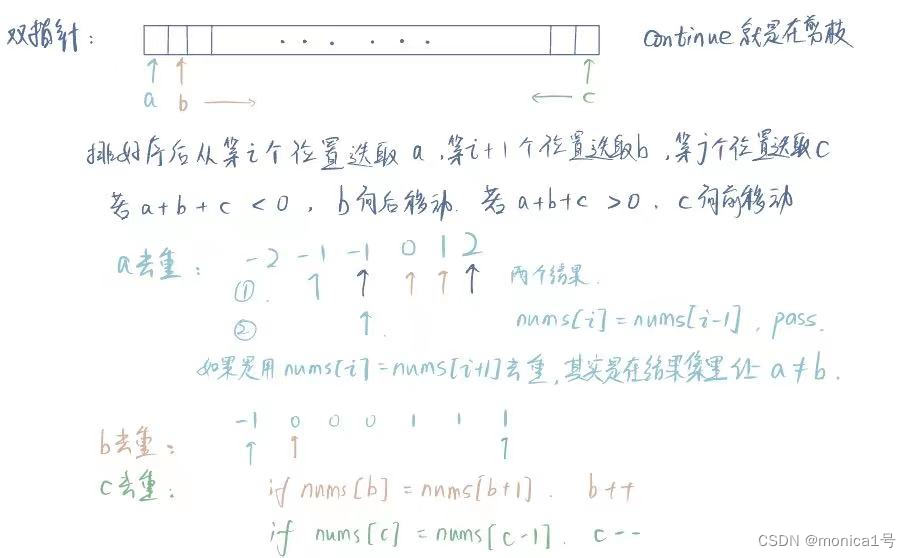 双指针：
continue 就是在剪枝
a b c
排好序后从第i个位置选取 a，第i+1个位置选取b，第j个位置选取c
若 a+b+c < 0，b向后移动. 若 a+b+c >0. c向前移动
a去重： -2 -1 -1 0 1 2
①. 两个结果.
② nums[i]=nums[i-1]，pass.
如果是用 nums[i]=nums[i+1]去重，其实是在结果集里让 a≠b.
-1 0 0 0 1 1 1
b去重：
c去重： if nums[b]=nums[b+1]. b++
if nums[c]=nums[c-1]. c--
CSDN @monica1号